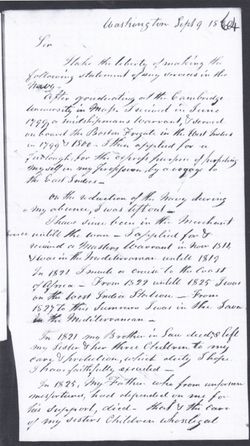 Washington Sept 9 18
Sir
I take the liberty of making the
following statement of my services in the
Navy.
After graduating at the Cambridge
University in Mass I received in June
1799 a midshipmans warrant, & served on
board the Boston Frigate in the West Indies
in 1799 & 1800. I then applied for a
furlough, for the express purpose of perfecting
myself in my profession by a voyage to
the East Indies.
On the reduction of the Navy during
my absence, I was left out.
I have since been in the Merchant
until the war. I applied for &
received a Masters Warrant in Nov 1814
& was in the Mediterranean until 1819
In 1821 I made a cruise to the Coast
of Africa. From 1822 until 1825 I was
on the West India Station. From
1827 to this Summer I was in the Java
in the Mediterranean.
In 1821 my Brother in Law died & left
my sister & her three Children to my
care & protection, which duty I hope
I have faithfully executed.
In 1825, My Father who from
misfortunes, had depended on me for
his support, died. that & the care
of my sisters Children who